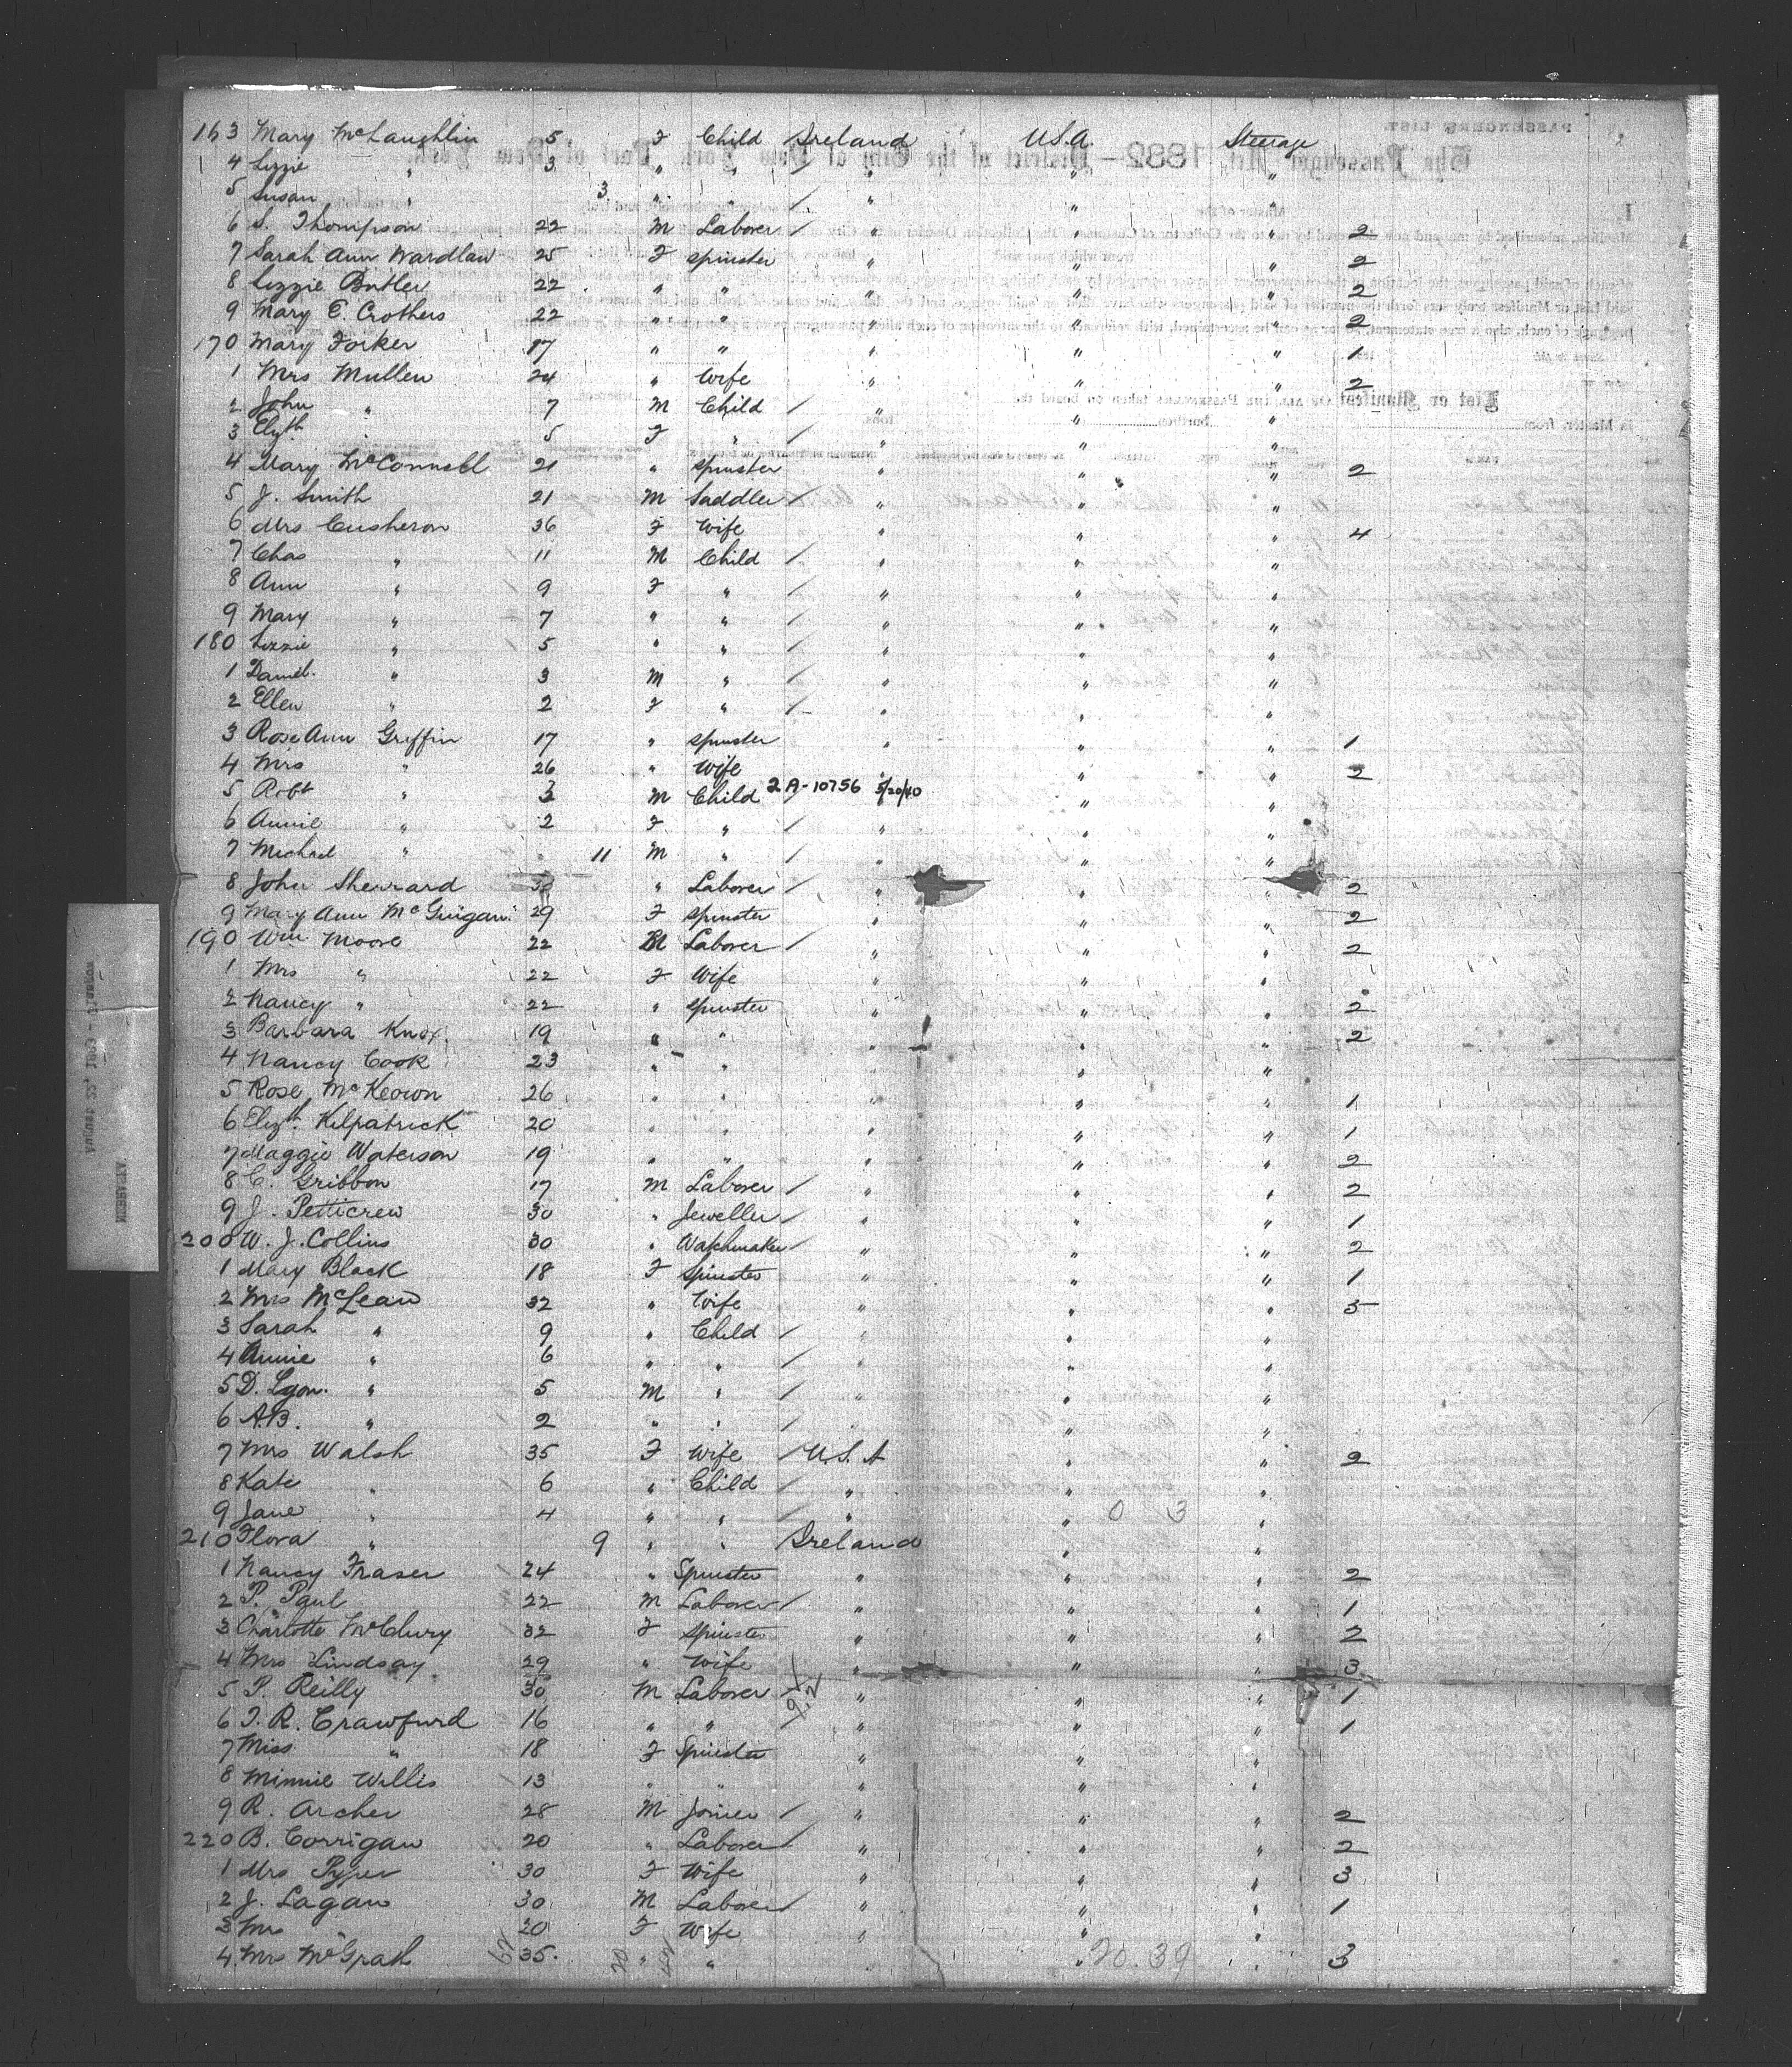 163 Mary McLaughlin 5 F Child Ireland U.S.A. Steerage
4 Lizzie " 3 " " / " " "
5 Susan " 3 " " / " " "
6 S. Thompson 22 M Laborer / " " " 2
7 Sarah Ann Wardlaw 25 F Spinster " " " 2
8 Lizzie Butler 22 " " " " " 2
9 Mary E. Crothers 22 " " " " " 2
170 Mary Forker 17 " " " " " 1
1 Mrs Mullen 24 " Wife " " " 2
2 John " 7 M Child / " " "
3 Elizth " 5 F " / " " "
4 Mary McConnell 21 " Spinster " " " 2
5 J. Smith 21 M Saddler / " " "
6 Mrs Cusheron 36 F Wife " " " 4
7 Chas " 11 M Child / " " "
8 Ann " 9 F " / " " "
9 Mary " 7 " " / " " "
180 Lizzie " 5 " " / " " "
1 Daniel " 3 M " / " " "
2 Ellen " 2 F " / " " "
3 Rose Ann Griffin 17 " Spinster " " " 1
4 Mrs " 26 " Wife " " " 2
5 Robt " 3 M Child 2A-10756 5/20/40 " "
6 Annie " 2 F " / " " "
7 Michael " 11 M " / " " "
8 John Sherrard 30 " Laborer / " " " 2
9 Mary Ann McGuigan 29 F Spinster " " " 2
190 Wm Moore 22 M Laborer / " " " 2
1 Mrs " 22 F Wife " " "
2 Nancy " 22 " Spinster " " " 2
3 Barbara Knox 19 " " " " " 2
4 Nancy Cook 23 " " " " "
5 Rose McKeown 26 " " " " " 1
6 Elizth Kilpatrick 20 " " " " " 1
7 Maggie Waterson 19 " " " " " 2
8 C. Gribbon 17 M Laborer / " " " 2
9 J. Petticrew 30 " Jeweller / " " " 1
200 W. J. Collins 30 " Watchmaker / " " " 2
1 Mary Black 18 F Spinster " " " 1
2 Mrs McLean 32 " Wife " " " 5
3 Sarah " 9 " Child / " " "
4 Annie " 6 " " / " " "
5 D. Lyon " 5 M " / " " "
6 A.B. " 2 " " / " " "
7 Mrs Walsh 35 F Wife / U.S.A " " 2
8 Kate " 6 " Child / " " "
9 Jane " 4 " " / " " 0 3 "
210 Flora " 9 " " Ireland " "
1 Nancy Fraser 24 " Spinster " " " 2
2 P. Paul 22 M Laborer / " " " 1
3 Charlotte McClury 32 F Spinster " " " 2
4 Mrs Lindsay 29 " Wife " " " 3
5 P. Reilly 30 M Laborer / " " " 1
6 T. R. Crawfurd 16 " " / " " " 1
7 Miss " 18 F Spinster " " "
8 Minnie Willis 13 " " " " "
9 R. Archer 28 M Joiner / " " " 2
220 B. Corrigan 20 " Laborer / " " " 2
1 Mrs Pyper 30 F Wife " " " 3
2 J. Lagan 30 M Laborer / " " " 1
3 Mrs 20 F Wife " " "
4 Mrs McGrath 35 " " " 20.39 " 3